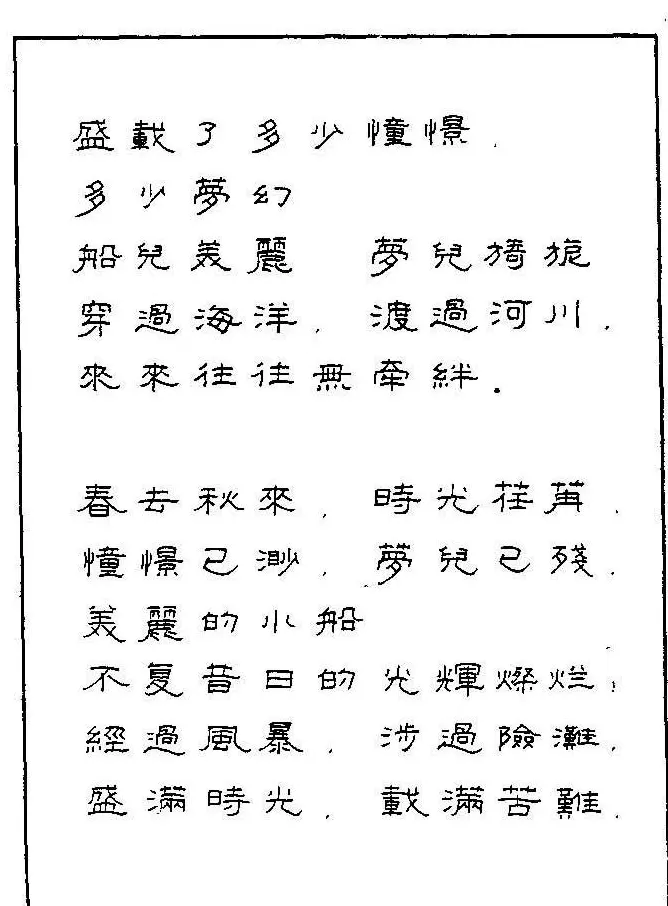 盛載了多少憧憬,
多少夢幻
船兒美麗 夢兒旖旎
穿過海洋,渡過河川,
來來往往無牽絆.
春去秋來,時光荏苒,
憧憬已渺,夢兒已殘,
美麗的小船
不复昔日的光輝燦烂;
經過風暴,涉過險灘,
盛滿時光,載滿苦難,